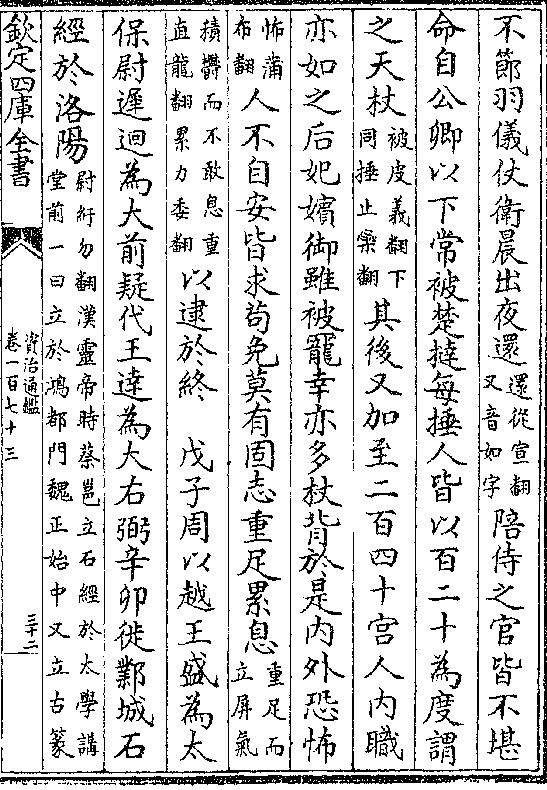 不節羽儀仗衛晨出夜還還從宣翻又音如字陪侍之官皆不堪
命自公卿以下常被楚撻每捶人皆以百二十為度謂
之天杖被皮義翻下同捶止橤翻其後又加至二百四十宮人内職
亦如之后妃嬪御雖被寵幸亦多杖背於是内外恐怖
怖蒲布翻人不自安皆求苟免莫有固志重足累息重足而立屏氣
積欝而不敢息重直龍翻累力委翻以逮於終 戊子周以越王盛為太
保尉遲迥為大前疑代王達為大右弼辛卯徙鄴城石
經於洛陽尉紆勿翻漢靈帝時蔡邕立石經於太學講堂前一曰立於鴻都門魏正始中又立古篆
欽定四庫全書
資治通鑑
卷一百七十三
三十二